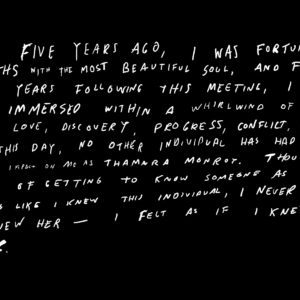 FIVE YEARS AGO, I WAS FORTUN
THS WITH THE MOST BEAUTIFUL SOUL, AND F
YEARS FOLLOWING THIS MEETING, I
IMMERSED WITHIN A WHIRLWIND OF
LOVE, DISCOVERY, PROGRESS, CONFLICT,
THIS DAY, NO OTHER INDIVIDUAL HAS HAD
IMPACT ON ME AS THAMARA MONROY. THOU
OF GETTING TO KNOW SOMEONE AS
S LIKE I KNEW THIS INDIVIDUAL, I NEVER
NEW HER — I FELT AS IF I KNE